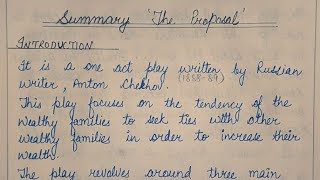 Summary 'The Proposal'
INTRODUCTION
It is a one act play written by Russian
writer, Anton Chekhov. (1888-89)
This play focuses on the tendency of the
wealthy families to seek ties with other
wealthy families in order to increase their
wealth.
The play revolves around three main